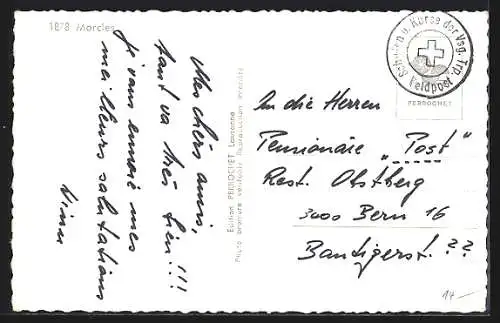 1878 Morcles
Mes chers amis,
tout va très bien!!!
Je vous envoie mes
meilleurs salutations
Edition PERROCHET Lausanne
Photo bromure véritable Reproduction interdite
Schulen u. Kurse der Vsg. Trp.
Feldpost
PERROCHET
An die Herren
Pensionäre „Post"
Rest. Obstberg
3000 Bern 16
Bantigerst. ??
14.-